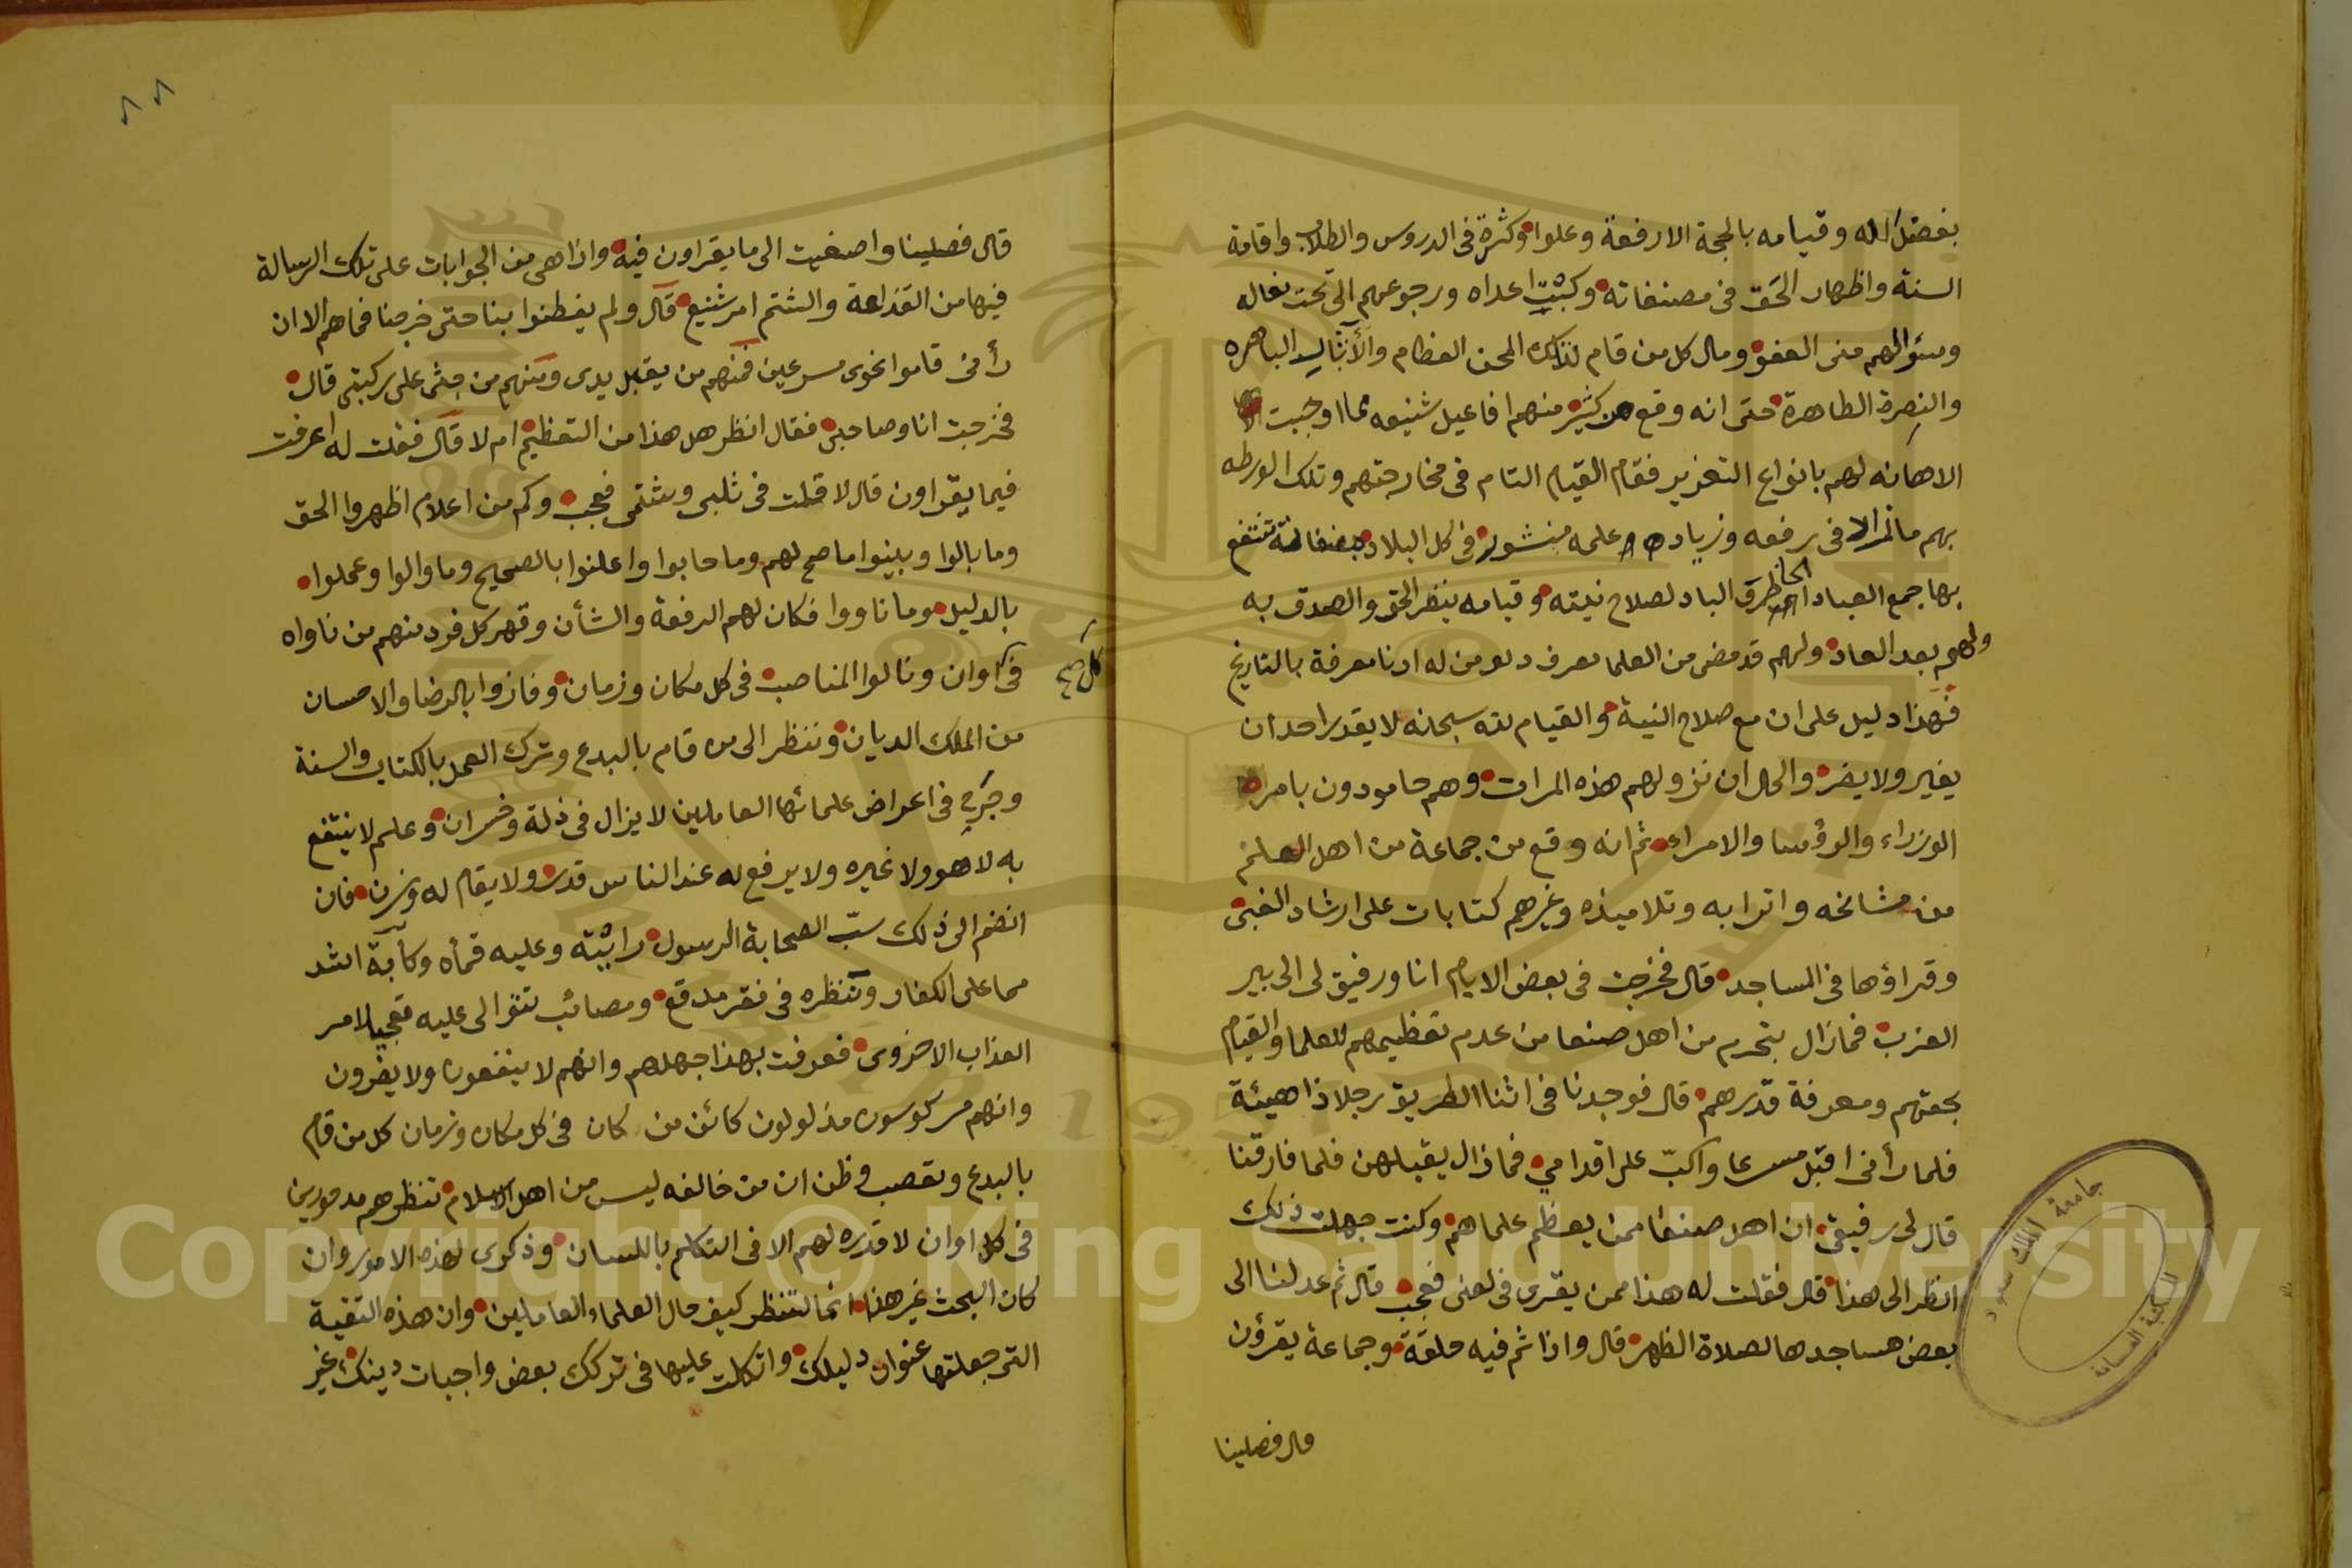 بفضل الله وقيامه بالحجة الارفعة وعلوا وكثرة في الدروس والطلاب واقامة
السنة واظهار الحق في مصنفاته وكبت اعداه ورجوعهم الى تحت نعاله
وسؤالهم منى العفو ومال كل من قام لتلك المحن العظام الباهره
والنصرة الطاهرة حتى انه وقع من كثير منهم افاعيل شنيعه مما اوجبت
الاهانه لهم بانواع التعزير فقام القيام التام في مخارجتهم وتلك الورطه
بهم مازال في رفعه وزياده علمه منشور في كل البلاد تنتفع
بها جمع العباد الباد لصلاح نيته وقيامه بنصر الحق والصدق به
ولهم بعد العاد ولهم قد مضى من العلما معرف دلو من له ادنا معرفة بالتاريخ
فهذا دليل على ان مع صلاح النية والقيام لله سبحانه لا يقدر احد ان
يغير ولا يضر والحال ان نزولهم هذه المرات وهم مامودون بامر
الوزراء والرؤسا والامراء ثم انه وقع من جماعة من اهل العلم
من مشائخه واترابه وتلاميذه وغيرهم كتابات على ارشاد الغبي
وقراؤها في المساجد قال فخرجت في بعض الايام انا ورفيق لى الى بير
العزب فمازال يتحرم من اهل صنعا من عدم تعظيمهم للعلما والقيام
بحقهم ومعرفة قدرهم قال فوجدنا في اثنا الطريق رجلا ذا هيئة
فلما رأنى اقبل مسرعا واكبّ على اقدامي فمازال يقبلهن فلما فارقنا
قال لى رفيقى ان اهل صنعا ممن يعظم علماهم وكنت جهلت ذلك
انظر الى هذا قال فقلت له هذا ممن يقرى فى لعنى فعجب قال ثم عدلنا الى
بعض مساجدها لصلاة الظهر قال واذا ثم فيه حلقة وجماعة يقرؤن
قال فصلينا
٨٨
قال فصلينا واصغيت الى ما يقراون فيه واذا هى من الجوابات على تلك الرسالة
فيها من القذاعة والشتم امر شنيع قال ولم يفطنوا بنا حتى خرجنا فما هم الا ان
رأنى قاموا نحوى مسرعين فمنهم من يقبل يدى ومنهم من جثى على ركبتى قال
فخرجت انا وصاحبى فقال انظر هل هذا من التعظيم ام لا قال فقلت له اعرفت
فيما يقراون قال لا قلت فى ثلبى وشتمى فعجب وكم من اعلام اظهروا الحق
وما بالوا وبينوا ما صح لهم وما حابوا واعلنوا بالصحيح وما والوا وعملوا
بالدليل وما ناووا فكان لهم الرفعة والشأن وقهر كل فرد منهم من ناواه
فى اوان ونالوا المناصب فى كل مكان وزمان وفازوا بالرضا والاحسان
كل صح
من الملك الديان وننظر الى من قام بالبدع وترك العمل بالكتاب والسنة
وجرح فى اعراض علمائها العاملين لا يزال فى ذلة وخسران وعلم لا ينتفع
به لا هو ولا غيره ولا يرفع له عند الناس قدر ولا يقام له وزن فان
انضم الى ذلك سبّ الصحابة الرسول رايته وعليه قمأه وكأبة اشد
مما على الكفار وتنظره فى فقر مدقع ومصائب تتوالى عليه لامر
العذاب الاخروى فعرفت بهذا جهلهم وانهم لا ينفعون ولا يضرون
وانهم مركوسون مذلولون كائن من كان فى كل مكان وزمان كل من قام
بالبدع وتعصب وظن ان من خالفه ليس من اهل الاسلام تنظرهم مدحورين
فى كل اوان لا قدره لهم الا فى التكلم باللسان وذكرى لهذه الامور وان
كان البحث غير هذا انما لتنظر كيف حال العلماء العاملين وان هذه التقية
التى جعلتها عنوان دليلك واتكلت عليها فى تركك بعض واجبات دينك غير
جامعة الملك سعود
المكتبة العامة
Copyright © King Saud University
1957